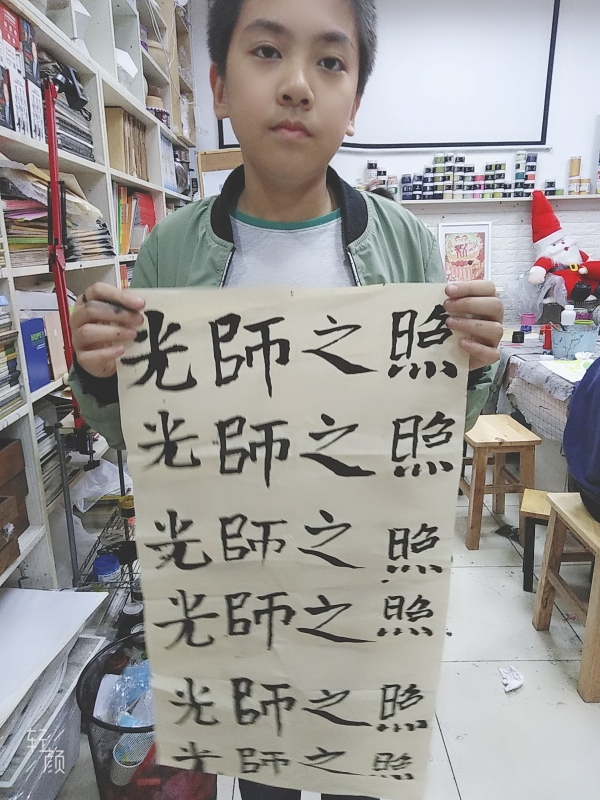 光師之照
光師之照
光師之照
光師之照
光師之照
光師之照
轻颜